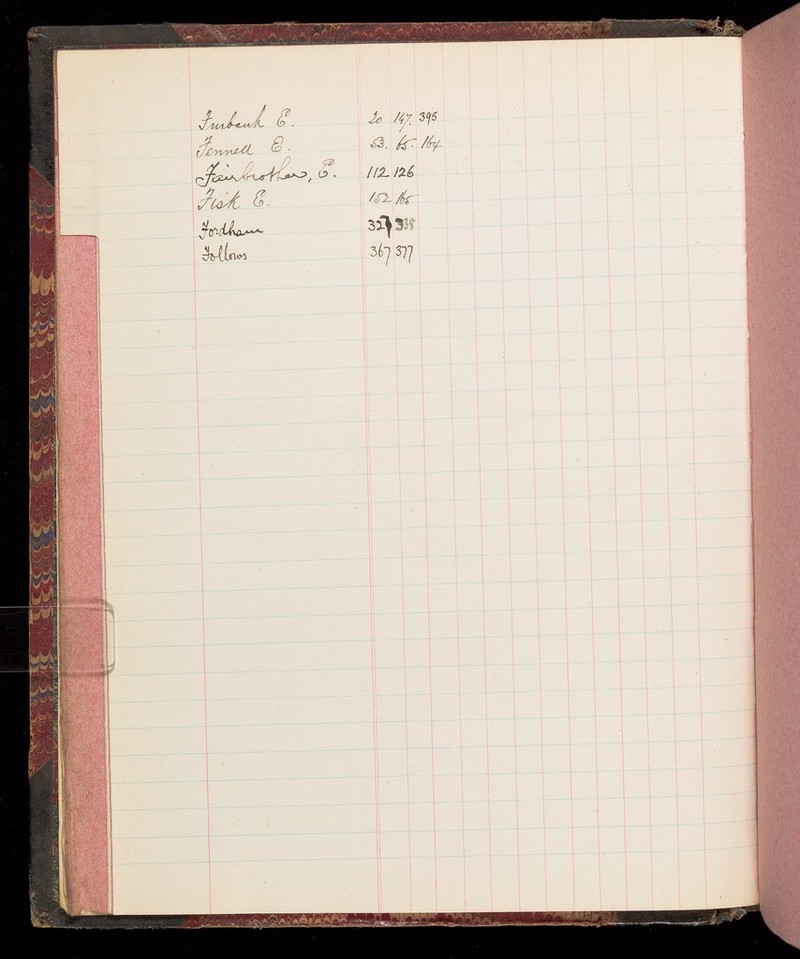 Furbank E. 20 147. 395
Fennell E. 53. 65. 164
Fairbrother, E. 112 126
Fisk E. 152 165
Fordham 327 338
Follows 367 377